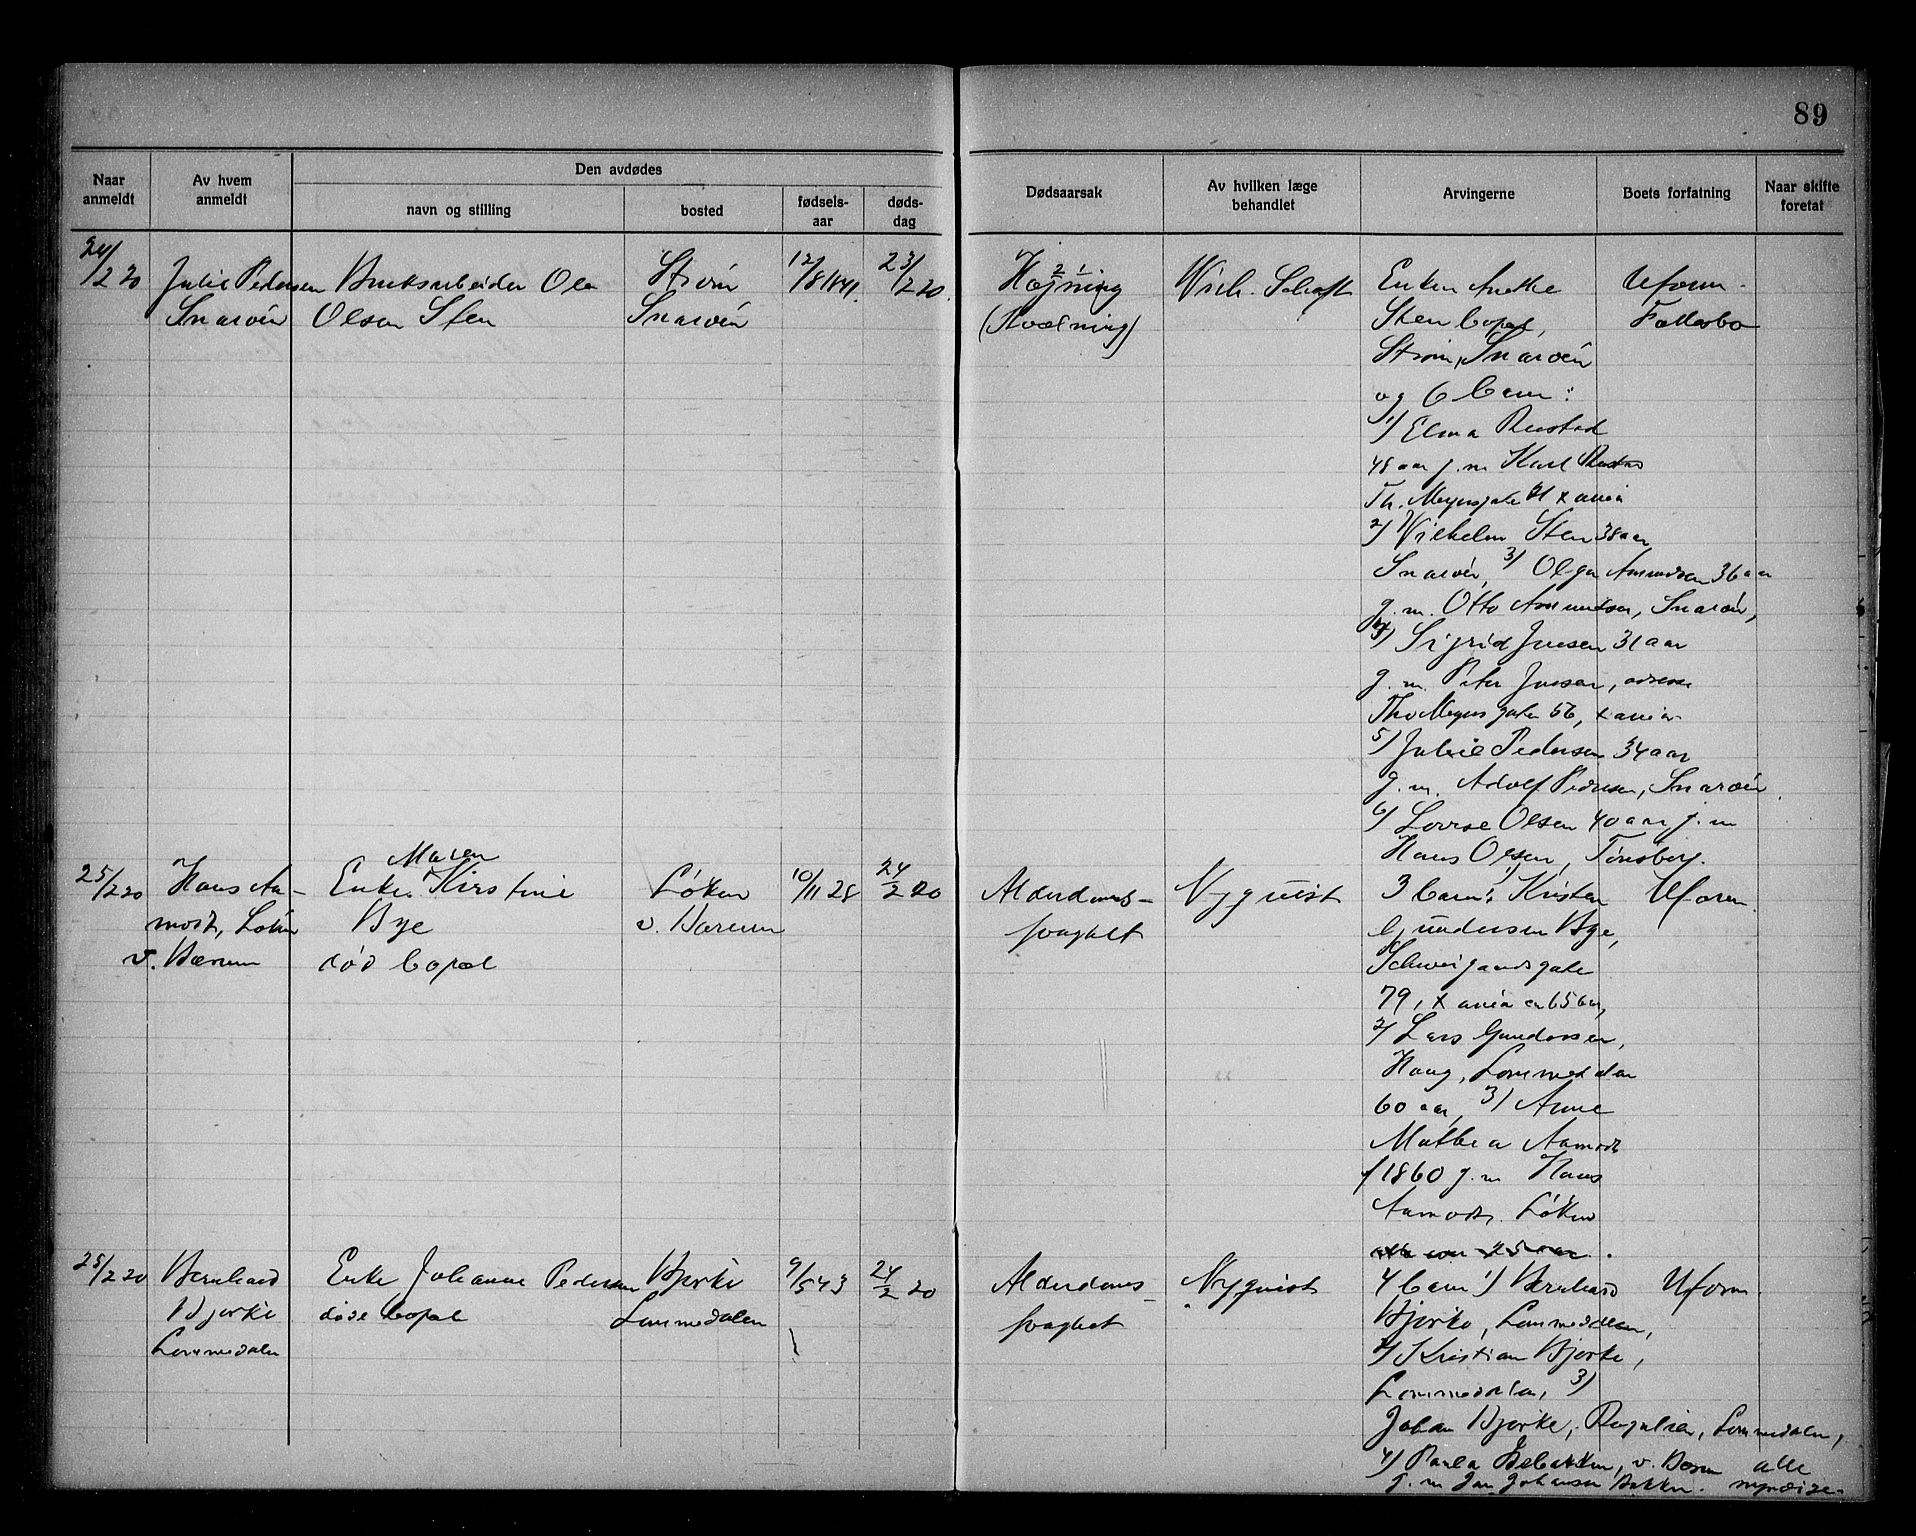 89
Naar anmeldt
Av hvem anmeldt
Den avdødes
navn og stilling
bosted
fødsels-aar
døds-dag
Dødsaarsak
Av hvilken læge behandlet
Arvingerne
Boets forfatning
Naar skifte foretat
24/2 20
Julie Pedersen
Snarøen
Bruksarbeider Ole
Olsen Sten
Strøm
Snarøen
12/8 1841.
23/2 20.
(Kvælning)
Enken Anethe
Sten
Strøm, Snarøen
og 6 barn:
1) Elma Rustad
48 aar g. m Karl Rustad
Th. Meyersgate 21 Xania
2) Wilhelm Sten 38 aar
Snarøen, 3) Olga Amundsen 36 aar
g. m. Otto Amundsen, Snarøen,
4) Sigrid Jensen 31 aar
g. m. Peter Jensen, adresse
Thv Meyersgaten 56, Xania
5) Julie Pedersen 34 aar
g. m. Adolf Pedersen, Snarøen.
6) Lovise Olsen 40 aar g. m
Hans Olsen, Tønsberg.
Uform.
Fællesbo
25/2 20
Hans Aa-
modt, Løken
v. Bærum
Maren
Enke Kirstine
Bye
død
Løken
v. Bærum
10/11 28
24/2 20
Alderdoms-
svaghet
Nyquist
3 barn: 1) Kristen
Gundersen Bye,
Schweigaardsgate
79, Xania ca 65 aar,
2) Lars Gundersen,
Haug, Lommedalen
60 aar, 3) Anne
Mathea Aamodt
f 1860 g. m Hans
Aamodt. Løken
Uform.
25/2 20
Bernhard
Bjerke
Lommedalen
Enke Johanne Pedersen
Bjerke
Lommedalen
9/5 43
24/2 20
Alderdoms-
svaghet
Nyquist
4 barn 1) Bernhard
Bjerke, Lommedalen,
2) Kristian Bjerke,
Lommedalen, 3)
Johan Bjerke, Lommedalen,
4) Paula v. Bærum alle
g. m Johansen Bakken. myndige.
Uform